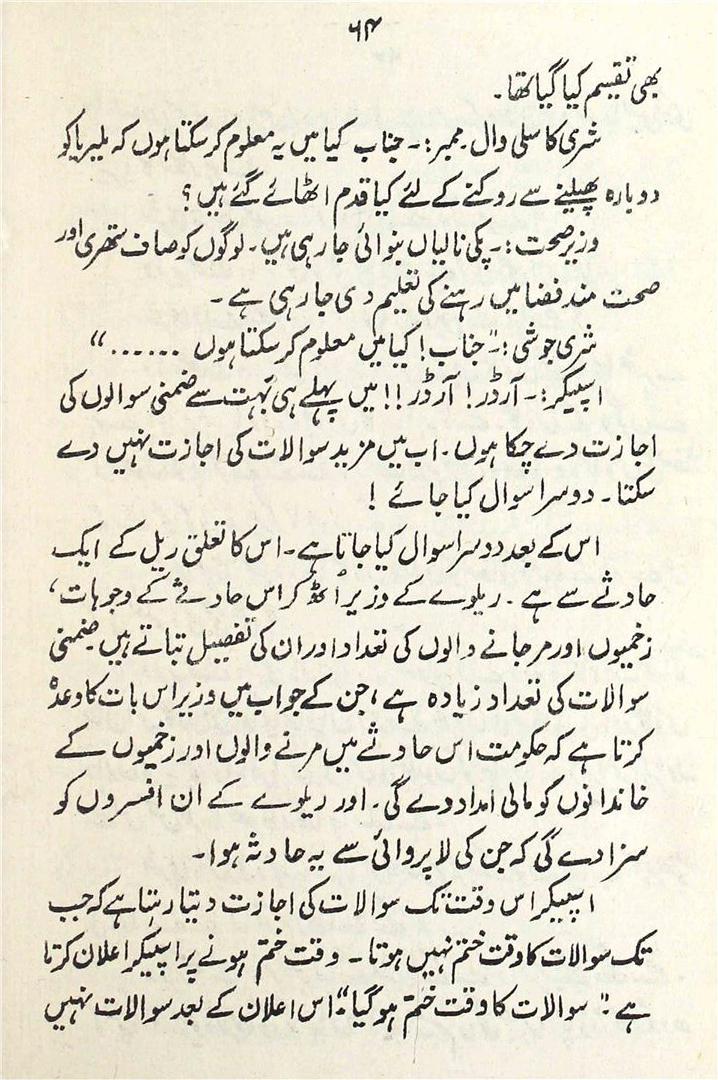 ۶۴
بھی تقسیم کیا گیا تھا۔
شری کاسلی وال۔ ممبر:۔ جناب کیا میں یہ معلوم کر سکتا ہوں کہ ملیریا کو
دوبارہ پھیلنے سے روکنے کے لئے کیا قدم اٹھائے گئے ہیں ؟
وزیر صحت :۔ پکی نالیاں بنوائی جا رہی ہیں۔ لوگوں کو صاف ستھری اور
صحت مند فضا میں رہنے کی تعلیم دی جا رہی ہے ۔
شری جوشی :۔ "جناب! کیا میں معلوم کر سکتا ہوں ......"
اسپیکر:۔ آرڈر! آرڈر!! میں پہلے ہی بہت سے ضمنی سوالوں کی
اجازت دے چکا ہوں۔ اب میں مزید سوالات کی اجازت نہیں دے
سکتا ۔ دوسرا سوال کیا جائے !
اس کے بعد دوسرا سوال کیا جاتا ہے۔ اس کا تعلق ریل کے ایک
حادثے سے ہے ۔ ریلوے کے وزیر اُٹھ کر اس حادثے کے وجوہات،
زخمیوں اور مر جانے والوں کی تعداد اور ان کی تفصیل بتاتے ہیں ضمنی
سوالات کی تعداد زیادہ ہے، جن کے جواب میں وزیر اس بات کا وعدہ
کرتا ہے کہ حکومت اس حادثے میں مرنے والوں اور زخمیوں کے
خاندانوں کو مالی امداد دے گی۔ اور ریلوے کے ان افسروں کو
سزا دے گی کہ جن کی لاپروائی سے یہ حادثہ ہوا۔
اسپیکر اس وقت تک سوالات کی اجازت دیتا رہتا ہے کہ جب
تک سوالات کا وقت ختم نہیں ہوتا ۔ وقت ختم ہونے پر اسپیکر اعلان کرتا
ہے :" سوالات کا وقت ختم ہو گیا"۔ اس اعلان کے بعد سوالات نہیں